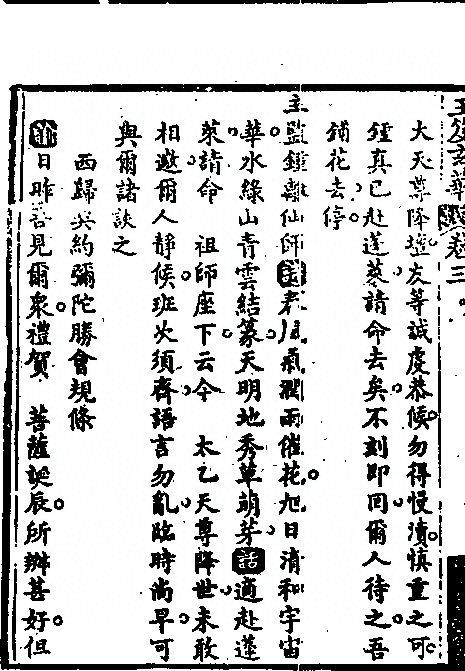 大天尊降壇友等誠虔恭候勿得慢瀆慎重之可
鍾真已赴蓬萊請命去矣不刻即回爾人待之吾
鋪花去停
主監鍾離仙師 氣潤雨催花旭日清和宇宙
華水綠山青雲結篆天明地秀草萌芽話適赴蓬
萊請命 祖師座下云今 太乙天尊降世未敢
相邀爾人靜候班次須齊語言勿亂臨時尚早可
與爾諸談之
西歸契約彌陀勝會規條
日昨喜見爾衆禮賀 菩薩誕辰所辦甚好但